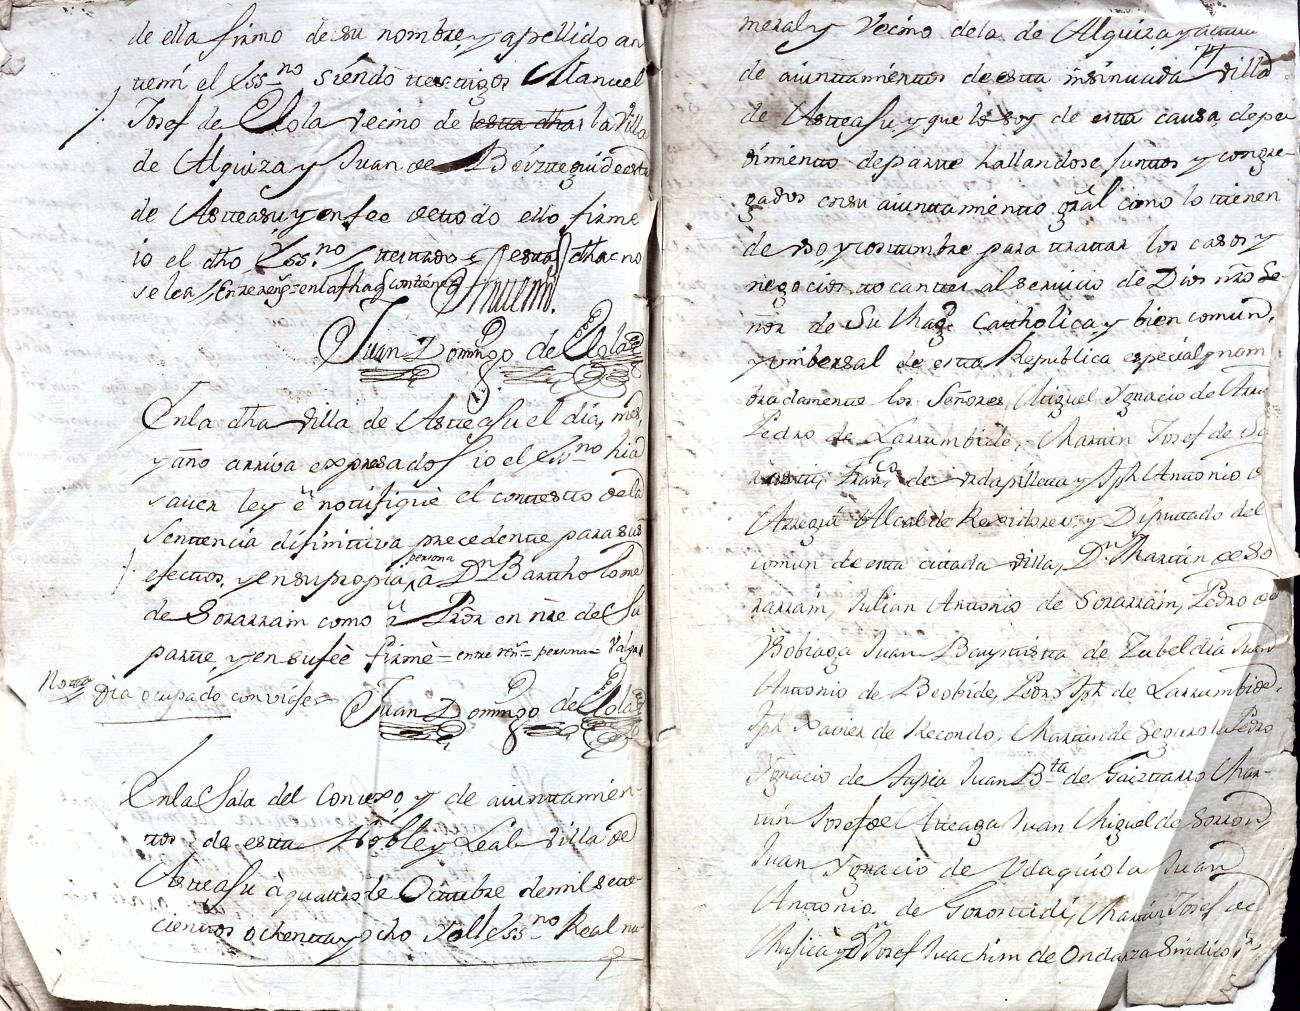 de ella firmo de su nombre, y apellido an
temi el Ess.no siendo testigos Manuel
Josef de Elola vecino de esta dha la Villa
de Alquiza y Juan de Beizttegui de esta
de Astteasu y en fee de ttodo ello firme
io el dho Ess.no ttesttado = esta dha = no
se lea / Entrereng.s = en la
Anttemi.
Juan Domingo de Elola
En la dha villa de Astteasu el dia, mes,
y año arriva expresados io el Ess.no hize
saver ley è nottifiquè el contestto de la
Senttencia difinittiva precedente para sus
efectos, y en su propia persona à Dn Bartholome
de Sorarrain como à Pror en nre de su
parte, y en su feè firmè = entre reng.s = persona = Valga
Notta
Dia ocupado con viaje
Juan Domingo de Elola
En la Sala del Concexo, y de aiunttamien-
ttos de esta Noble y Leal villa de
Astteasu à quattro de Octtubre de mil sette-
cienttos ochentta y ocho Io el Ess.no Real nu-
meral y vecino de la de Alquiza y
de aiunttamienttos de esta insinuada Villa
de Astteasu, y que lo soy de esta causa, de pe
dimiento de parte hallandose junttos y congre-
gados en su aiunttamientto gral como lo ttienen
de vso, y costtumbre para ttrattar los casos y
negocios ttocanttes al servicio de Dios nro Se
ñor de Su Mag.d Catholica y bien comun,
y vnibersal de esta Republica especial y nom
bradamente los Señores, Miguel Ygnacio de
Pedro de Larrumbide, Marttin Josef de
Fran.co de y Jph Anttonio
Arregui Alcalde Rexidores y Diputtado del
comun de esta cittada villa, Dn Marttin de So
rarrain, Julian Anttonio de Sorarrain, Pedro de
Bobiaga Juan Bauptistta de Zubeldia Juan
Anttonio de Beobide, Pedro Jph de Larrumbide,
Jph Xavier de Recondo, Marttin de Segurola Pedro
Ygnacio de Juan B.ta de Gaizttarro Mar-
tin Josef de Artteaga Juan Miguel de
Juan Ygnacio de Vdaquiola Juan
Anttonio de Gorosttidi, Marttin Josef de
Musica y Dn Josef Juachim de Ondarza Sindico